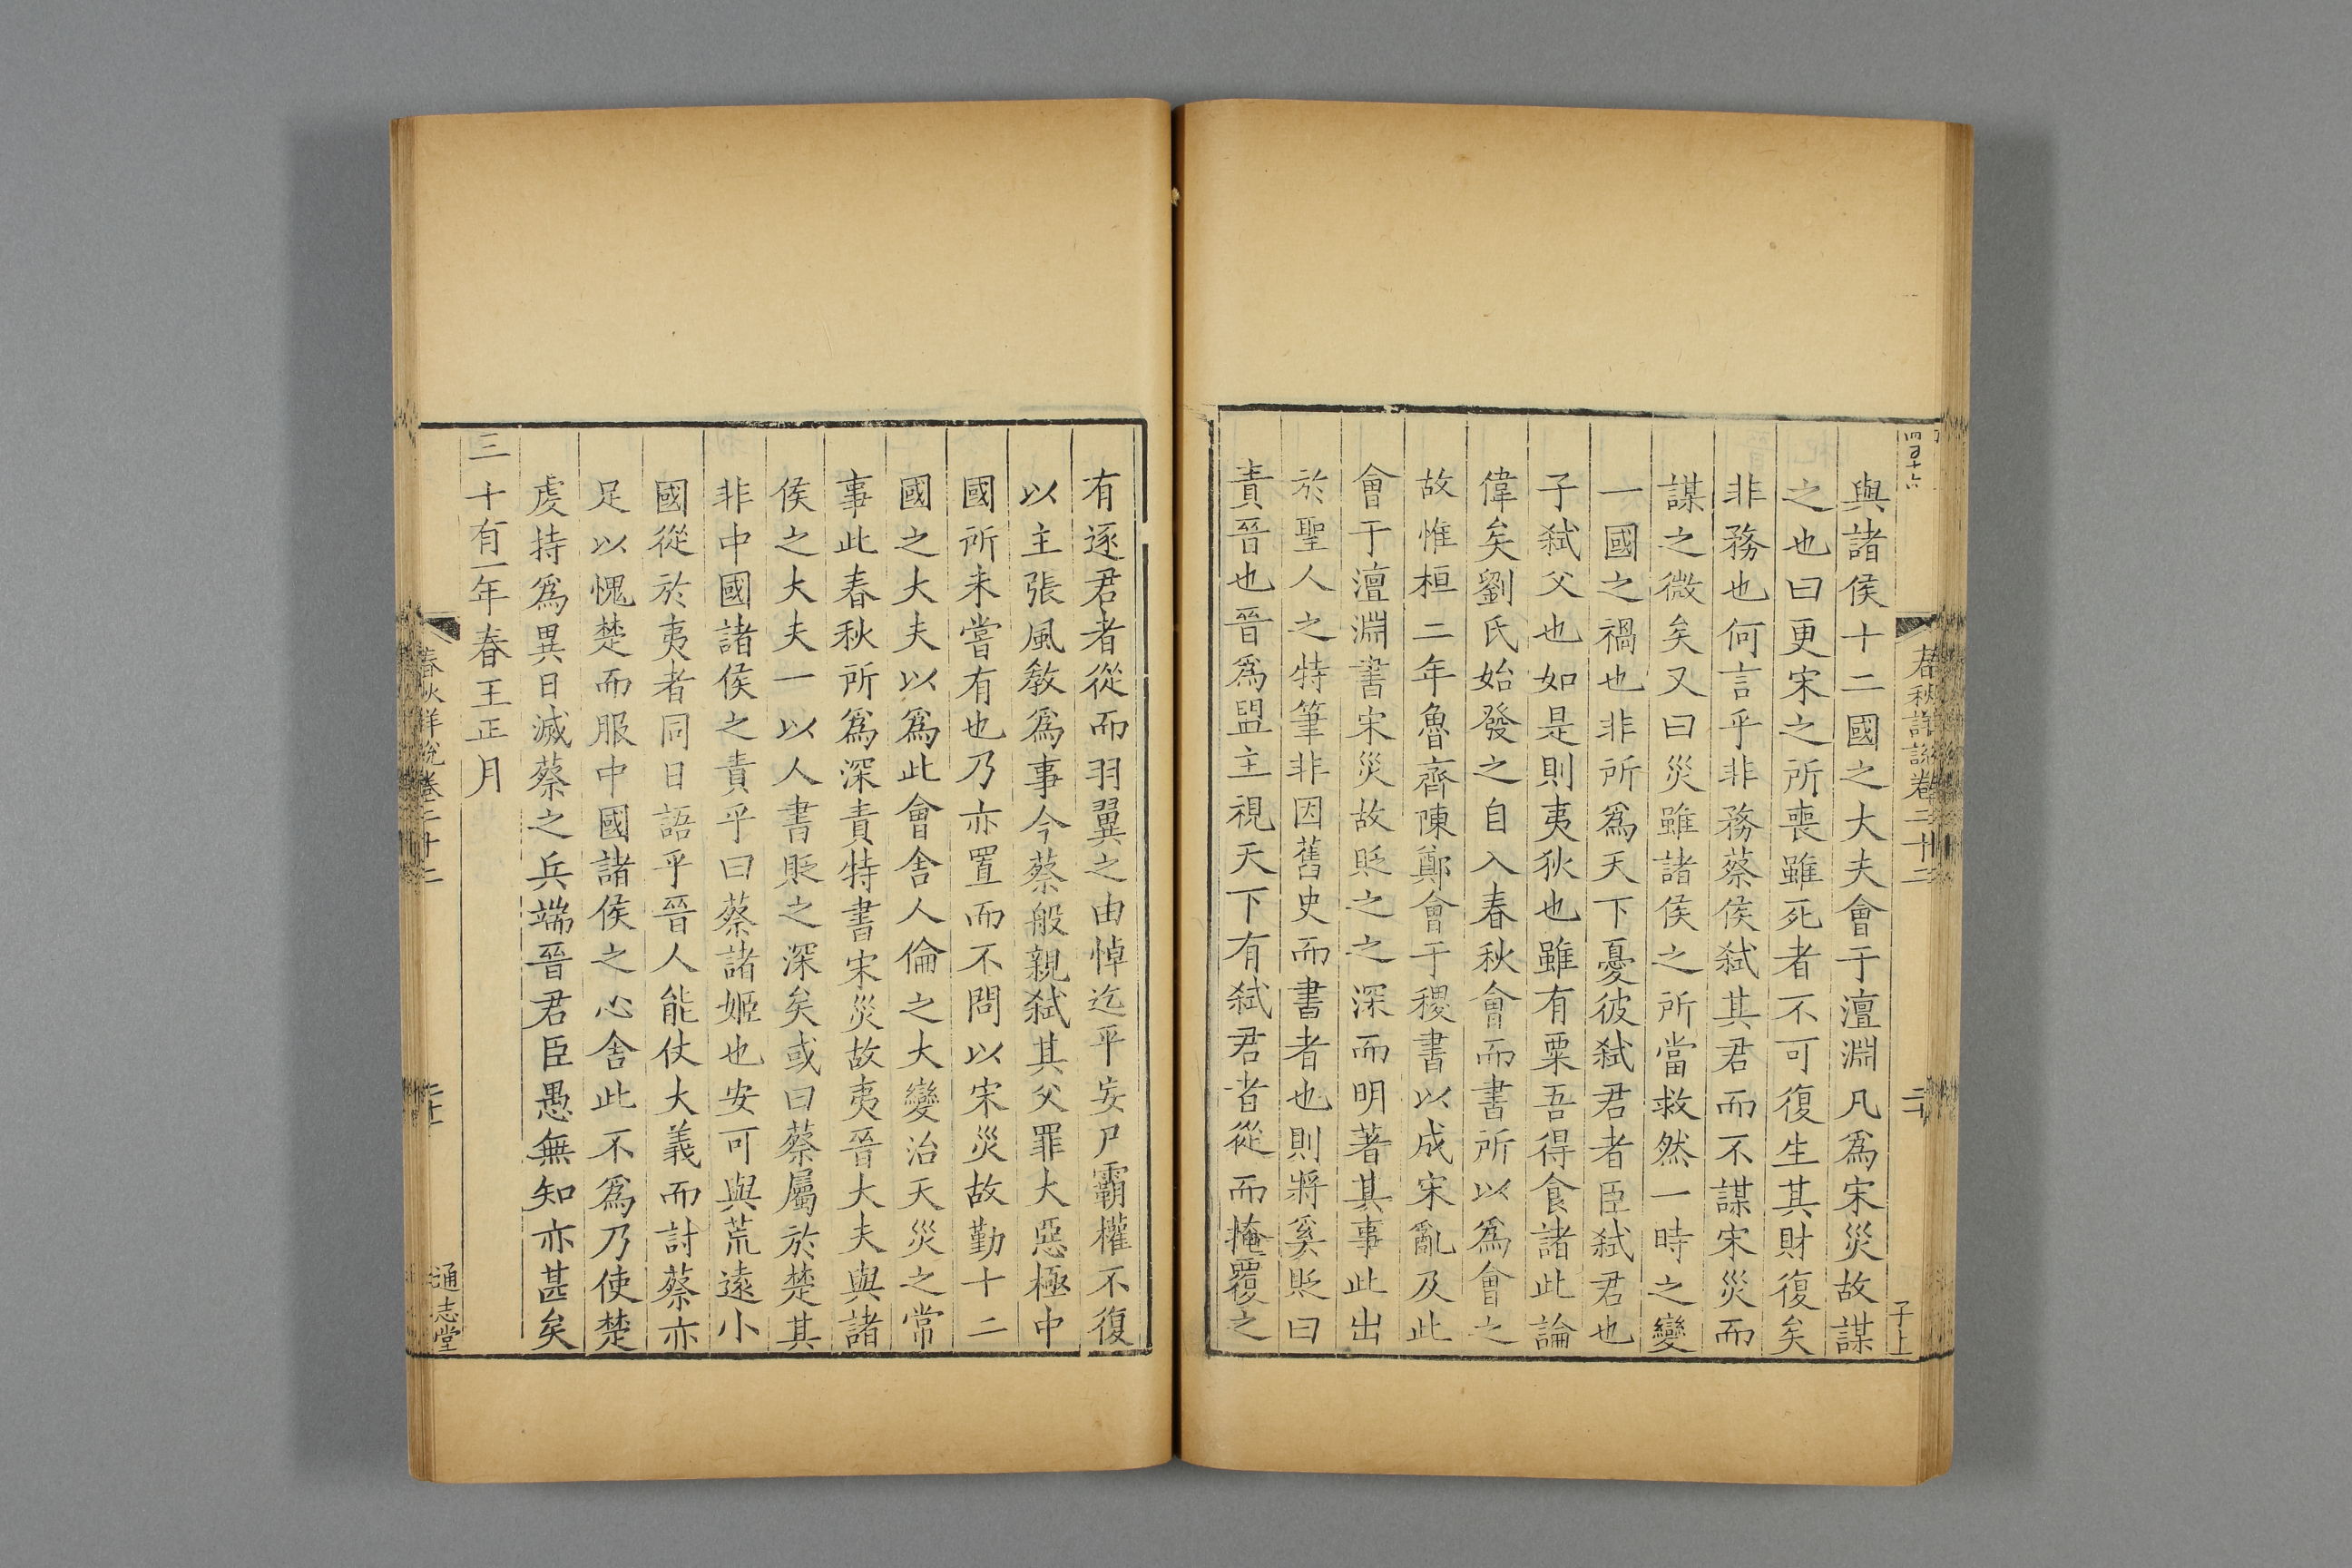 與諸侯十二國之大夫會于澶淵凡爲宋災故謀
之也曰更宋之所喪雖死者不可復生其財復矣
非務也何言乎非務蔡侯弑其君而不謀宋災而
謀之微矣又曰災雖諸侯之所當救然一時之變
一國之禍也非所爲天下憂彼弑君者臣弑君也
子弑父也如是則夷狄也雖有粟吾得食諸此論
偉矣劉氏始發之自入春秋會而書所以爲會之
故惟桓二年魯齊陳鄭會于稷書以成宋亂及此
會于澶淵書宋災故貶之之深而明著其事此出
於聖人之特筆非因舊史而書者也則將奚貶曰
責晉也晉爲盟主視天下有弑君者從而掩覆之
春秋詳說卷二十二
子上
有逐君者從而羽翼之由悼迄平妄尸霸權不復
以主張風教爲事今蔡般親弑其父罪大惡極中
國所未嘗有也乃亦置而不問以宋災故勤十二
國之大夫以爲此會舍人倫之大變治天災之常
事此春秋所爲深責特書宋災故夷晉大夫與諸
侯之大夫一以人書貶之深矣或曰蔡屬於楚其
非中國諸侯之責乎曰蔡諸姬也安可與荒遠小
國從於夷者同日語乎晉人能仗大義而討蔡亦
足以愧楚而服中國諸侯之心舍此不爲乃使楚
虔持爲異日滅蔡之兵端晉君臣愚無知亦甚矣
三十有一年春王正月
春秋詳說卷二十二
通志堂